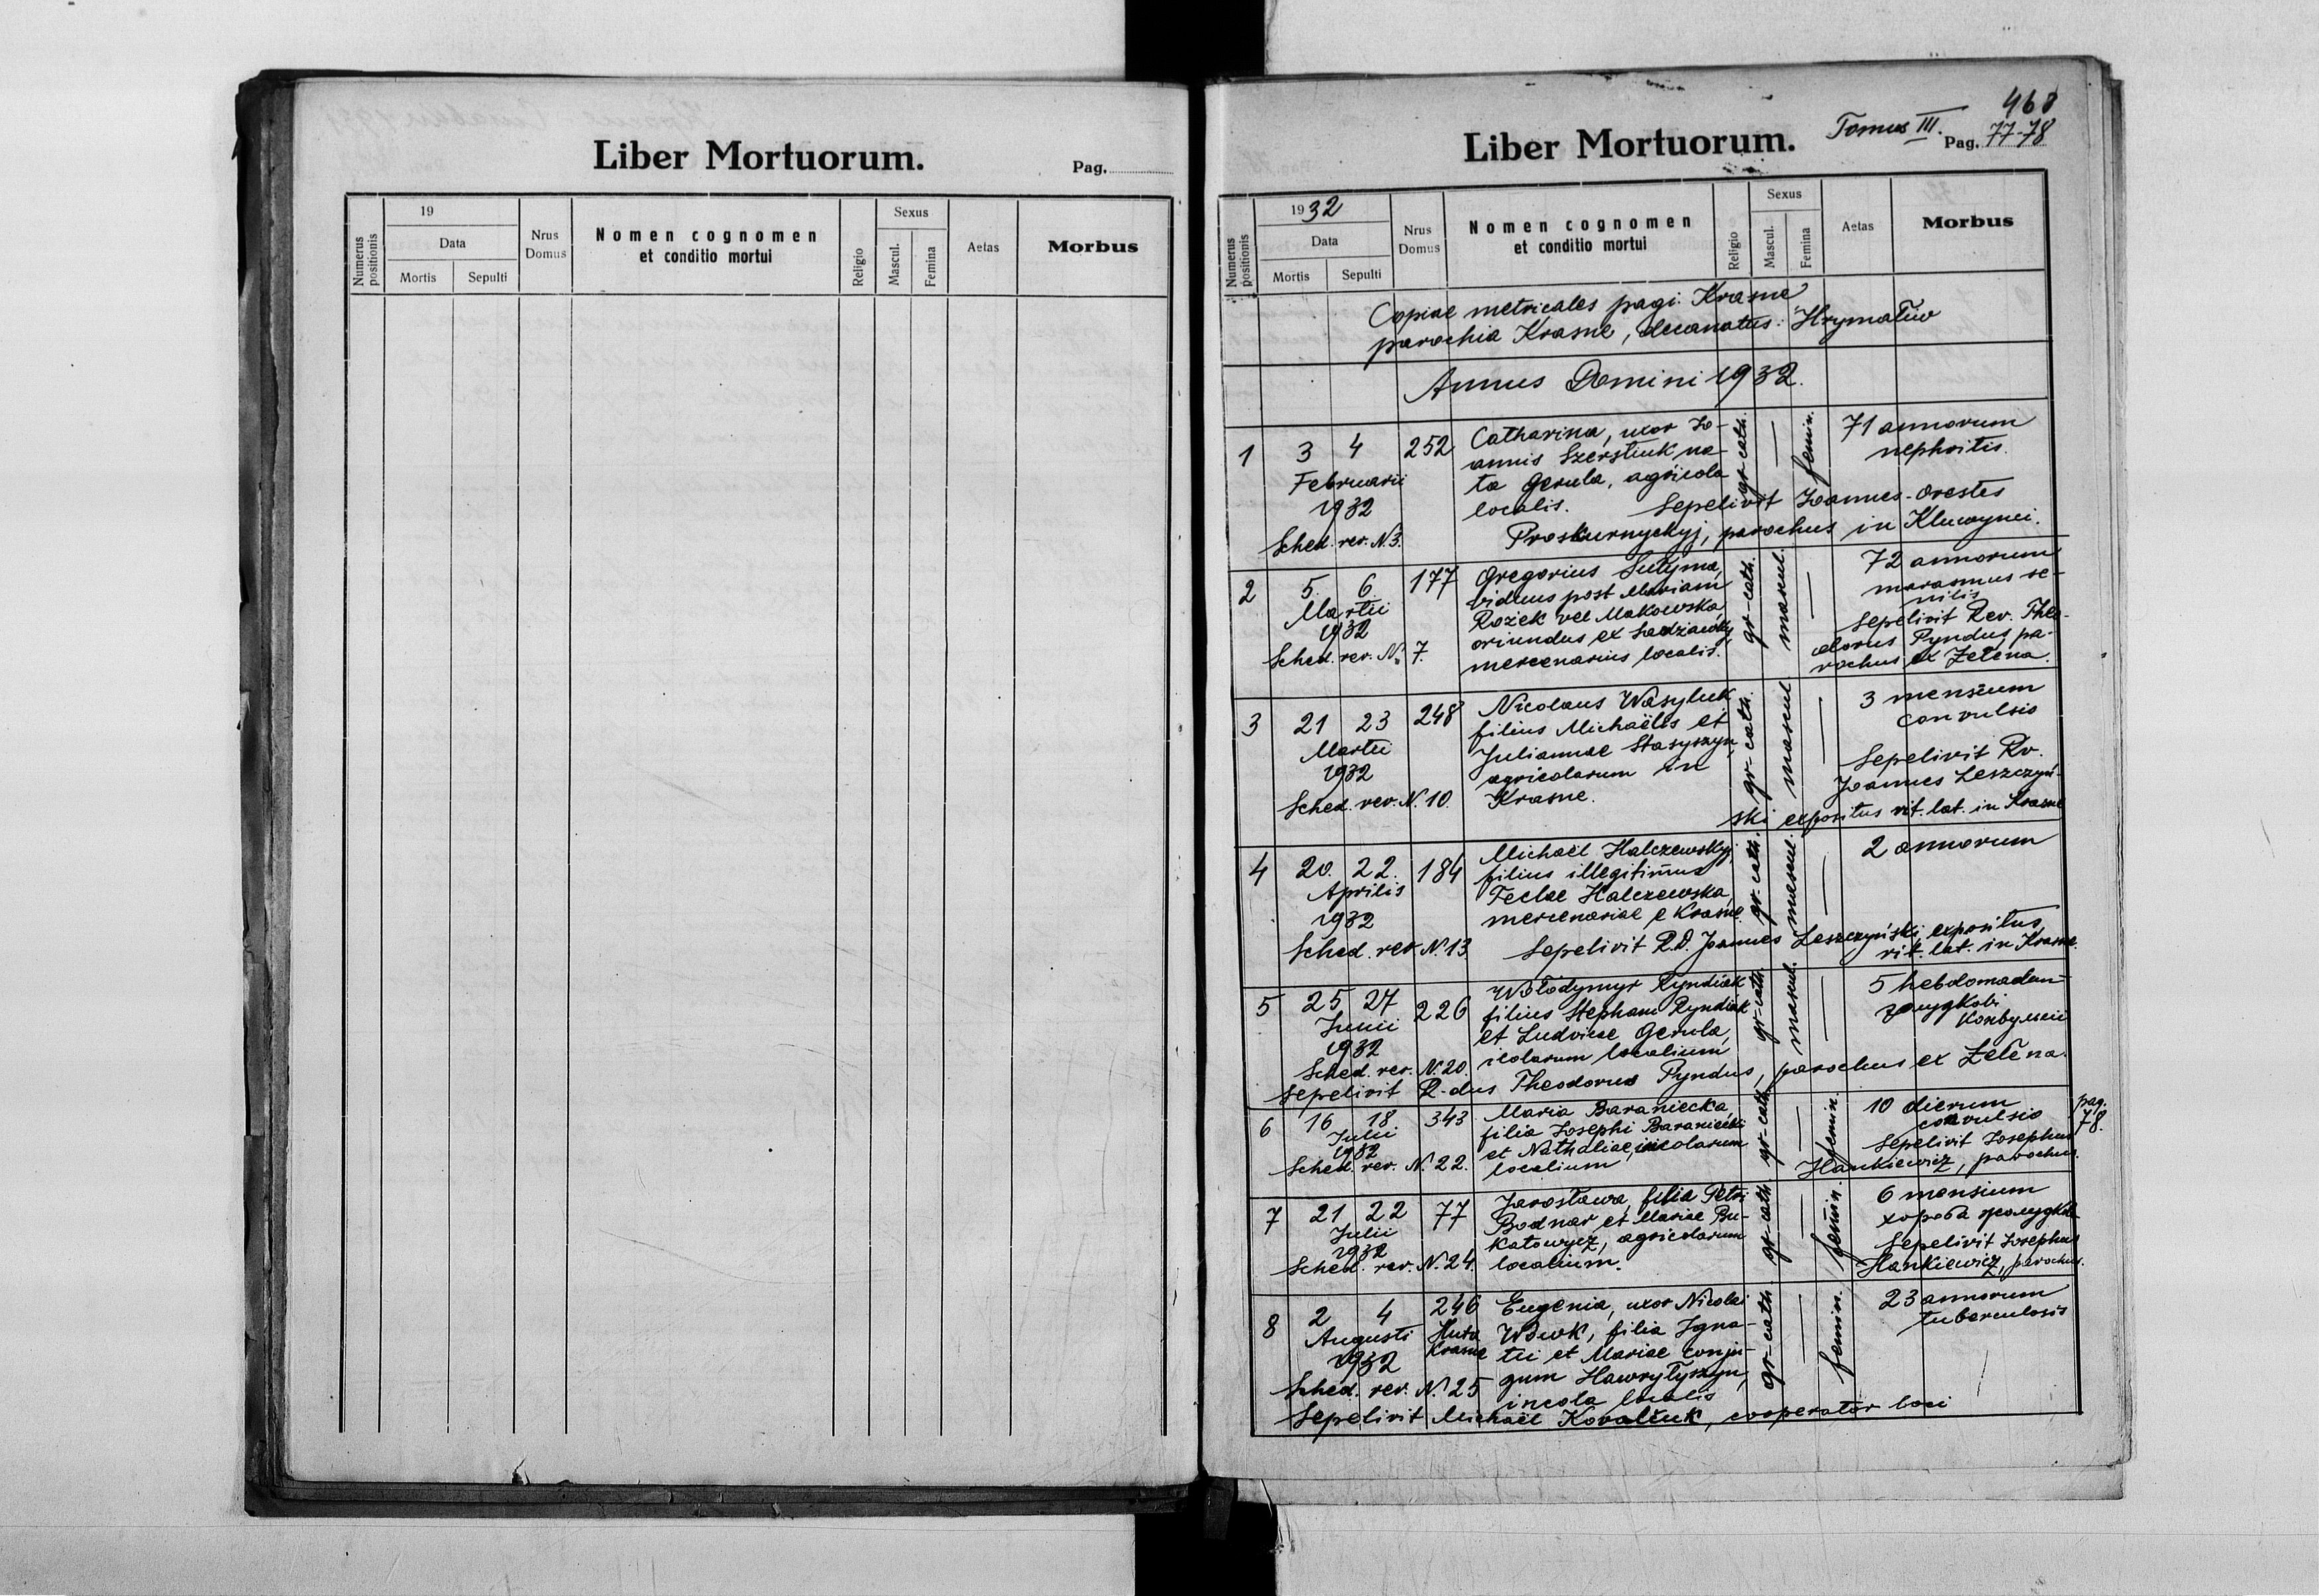 Liber Mortuorum.
Pag.
Numerus positionis
19
Data
Mortis
Sepulti
Nrus Domus
Nomen cognomen
et conditio mortui
Religio
Sexus
Mascul.
Femina
Aetas
Morbus
468
Liber Mortuorum.
Tomus III.
Pag. 77-78
Numerus positionis
1932
Data
Mortis
Sepulti
Nrus Domus
Nomen cognomen
et conditio mortui
Religio
Sexus
Mascul.
Femina
Aetas
Morbus
Copiae metricales pagi: Krasne
parochia Krasne, decanatus: Hrymałiw
Annus Domini 1932.
1
3 4
Februarii
1932
Sched. rev. N. 3.
252
Catharina, uxor Jo-
annis Szerstiuk na-
ta Gerula, agricola
localis.
gr-cath.
femin.
71 annorum
nephritis.
Sepelivit Joannes-Orestes
Proskurnyckyj, parochus in Kluwynci.
2
5. 6.
Martii
1932
Sched. rev. N. 7.
177
Gregorius Sutyma,
viduus post Mariam
Rożek vel Makowska,
oriundus ex
mercenarius localis.
gr-cath.
mascul.
72 annorum
marasmus se-
nilis
Sepelivit Rev. Theo-
dorus Pyndus, pa-
rochus ex Zełena.
3
21 23
Martii
1932
Sched. rev. N. 10.
248
Nicolaus Wasyluk
filius Michaëlis et
Juliannae Stasyszyn,
agricolarum in
Krasne.
gr-cath.
mascul
3 mensium
convulsio
Sepelivit Rv.
Joannes Leszczyń-
ski expositus rit. lat. in Krasne
4
20. 22.
Aprilis
1932
Sched. rev. N. 13
184
Michaël Halczewskyj
filius illegitimus
Teclae Halczewska,
mercenariae e Krasne.
gr-cath.
mascul.
2 annorum
Sepelivit R.D. Joannes Leszczyński, expositus
rit. lat. in Krasne.
5
25 27
Junii
1932
Sched. rev. N. 20.
226
Wołodymyr Ryndiak
filius Stephani Ryndiak
et Ludvicae Gerula,
icolarum localium
gr-cath.
mascul.
5 hebdomadum
Sepelivit R-dus Theodorus Pyndus, parochus ex Zełena.
6
16 18
Julii
1932
Sched. rev. N. 22.
343
Maria Baraniecka,
filia Josephi Baraniecki
et Nathaliae, incolarum
localium
gr-cath.
femin.
10 dierum
convulsio
Sepelivit Josephus
Hankiewicz, parochus.
pag.
78.
7
21 22
Julii
1932
Sched. rev. N. 24.
77
Jarosława, filia Petri
Bodnar et Mariae Bu-
katowycz, agricolarum
localium.
gr-cath
femin.
6 mensium
хороба жолудка
Sepelivit Josephus
Hankiewicz, parochus.
8
2 4
Augusti
1932
Sched. rev. N. 25
246
Huta
Krasne
Eugenia, uxor Nicolai
Wowk, filia Igna-
tii et Mariae conju-
gum Hawryłyszyn,
incola localis
gr-cath
femin.
23 annorum
tuberculosis
Sepelivit Michaël Kovalčuk, cooperator loci